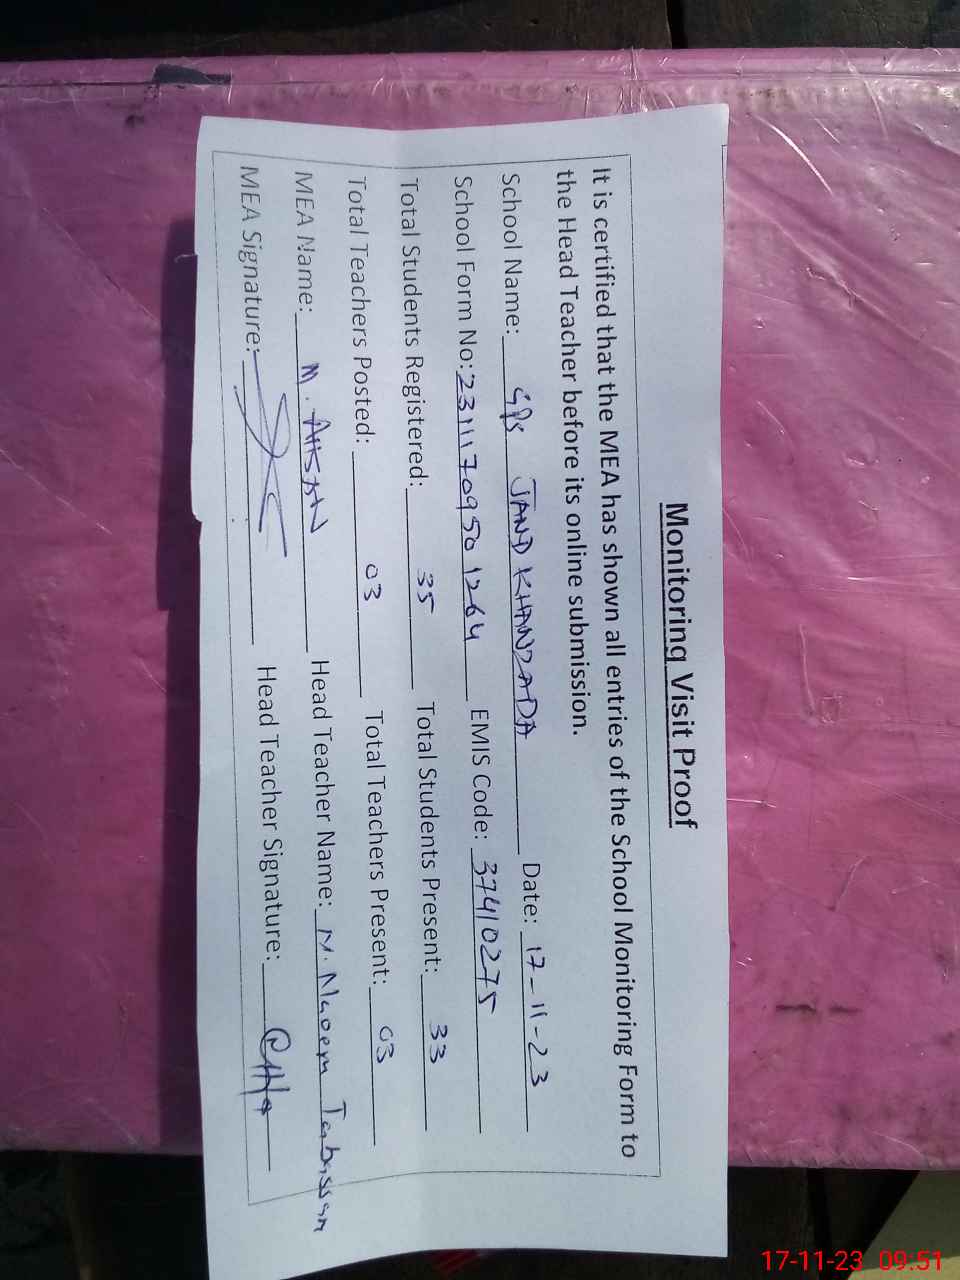 Monitoring Visit Proof
It is certified that the MEA has shown all entries of the School Monitoring Form to
the Head Teacher before its online submission.
School Name: GPS JAND KHANZADA Date: 17-11-23
School Form No: 2311170950 1264 EMIS Code: 37410275
Total Students Registered: 35 Total Students Present: 33
Total Teachers Posted: 03 Total Teachers Present: 03
MEA Name: M. AHSAN Head Teacher Name: M. Naeem Tabassam
MEA Signature: Head Teacher Signature:
17-11-23 09:51